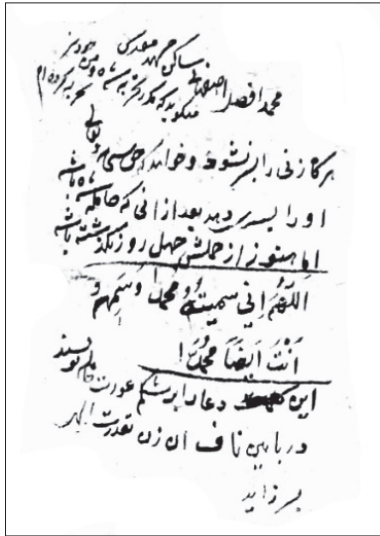 ساکن مشهد مقدس
محمد افضل اصفهانی
میگوید که مکرر تجربه شده و من خود نیز تجربه کرده ام
هرگاه زنی را پسر نشود و خواهد که حق
او را پسری دهد بعد از آنی که حامله شده باشد
اما هنوز از حملش چهل روز نگذشته باشد
اللّهُمَ اِنی سمیتُهُ مُحمداً وَسَمِهِم و
اَنْتَ اَیضاً مُحمَّداً
این دعا را بر شکم عورت حامله نویسند
در پایین ناف آن زن بقدرت الهی
پسر زاید